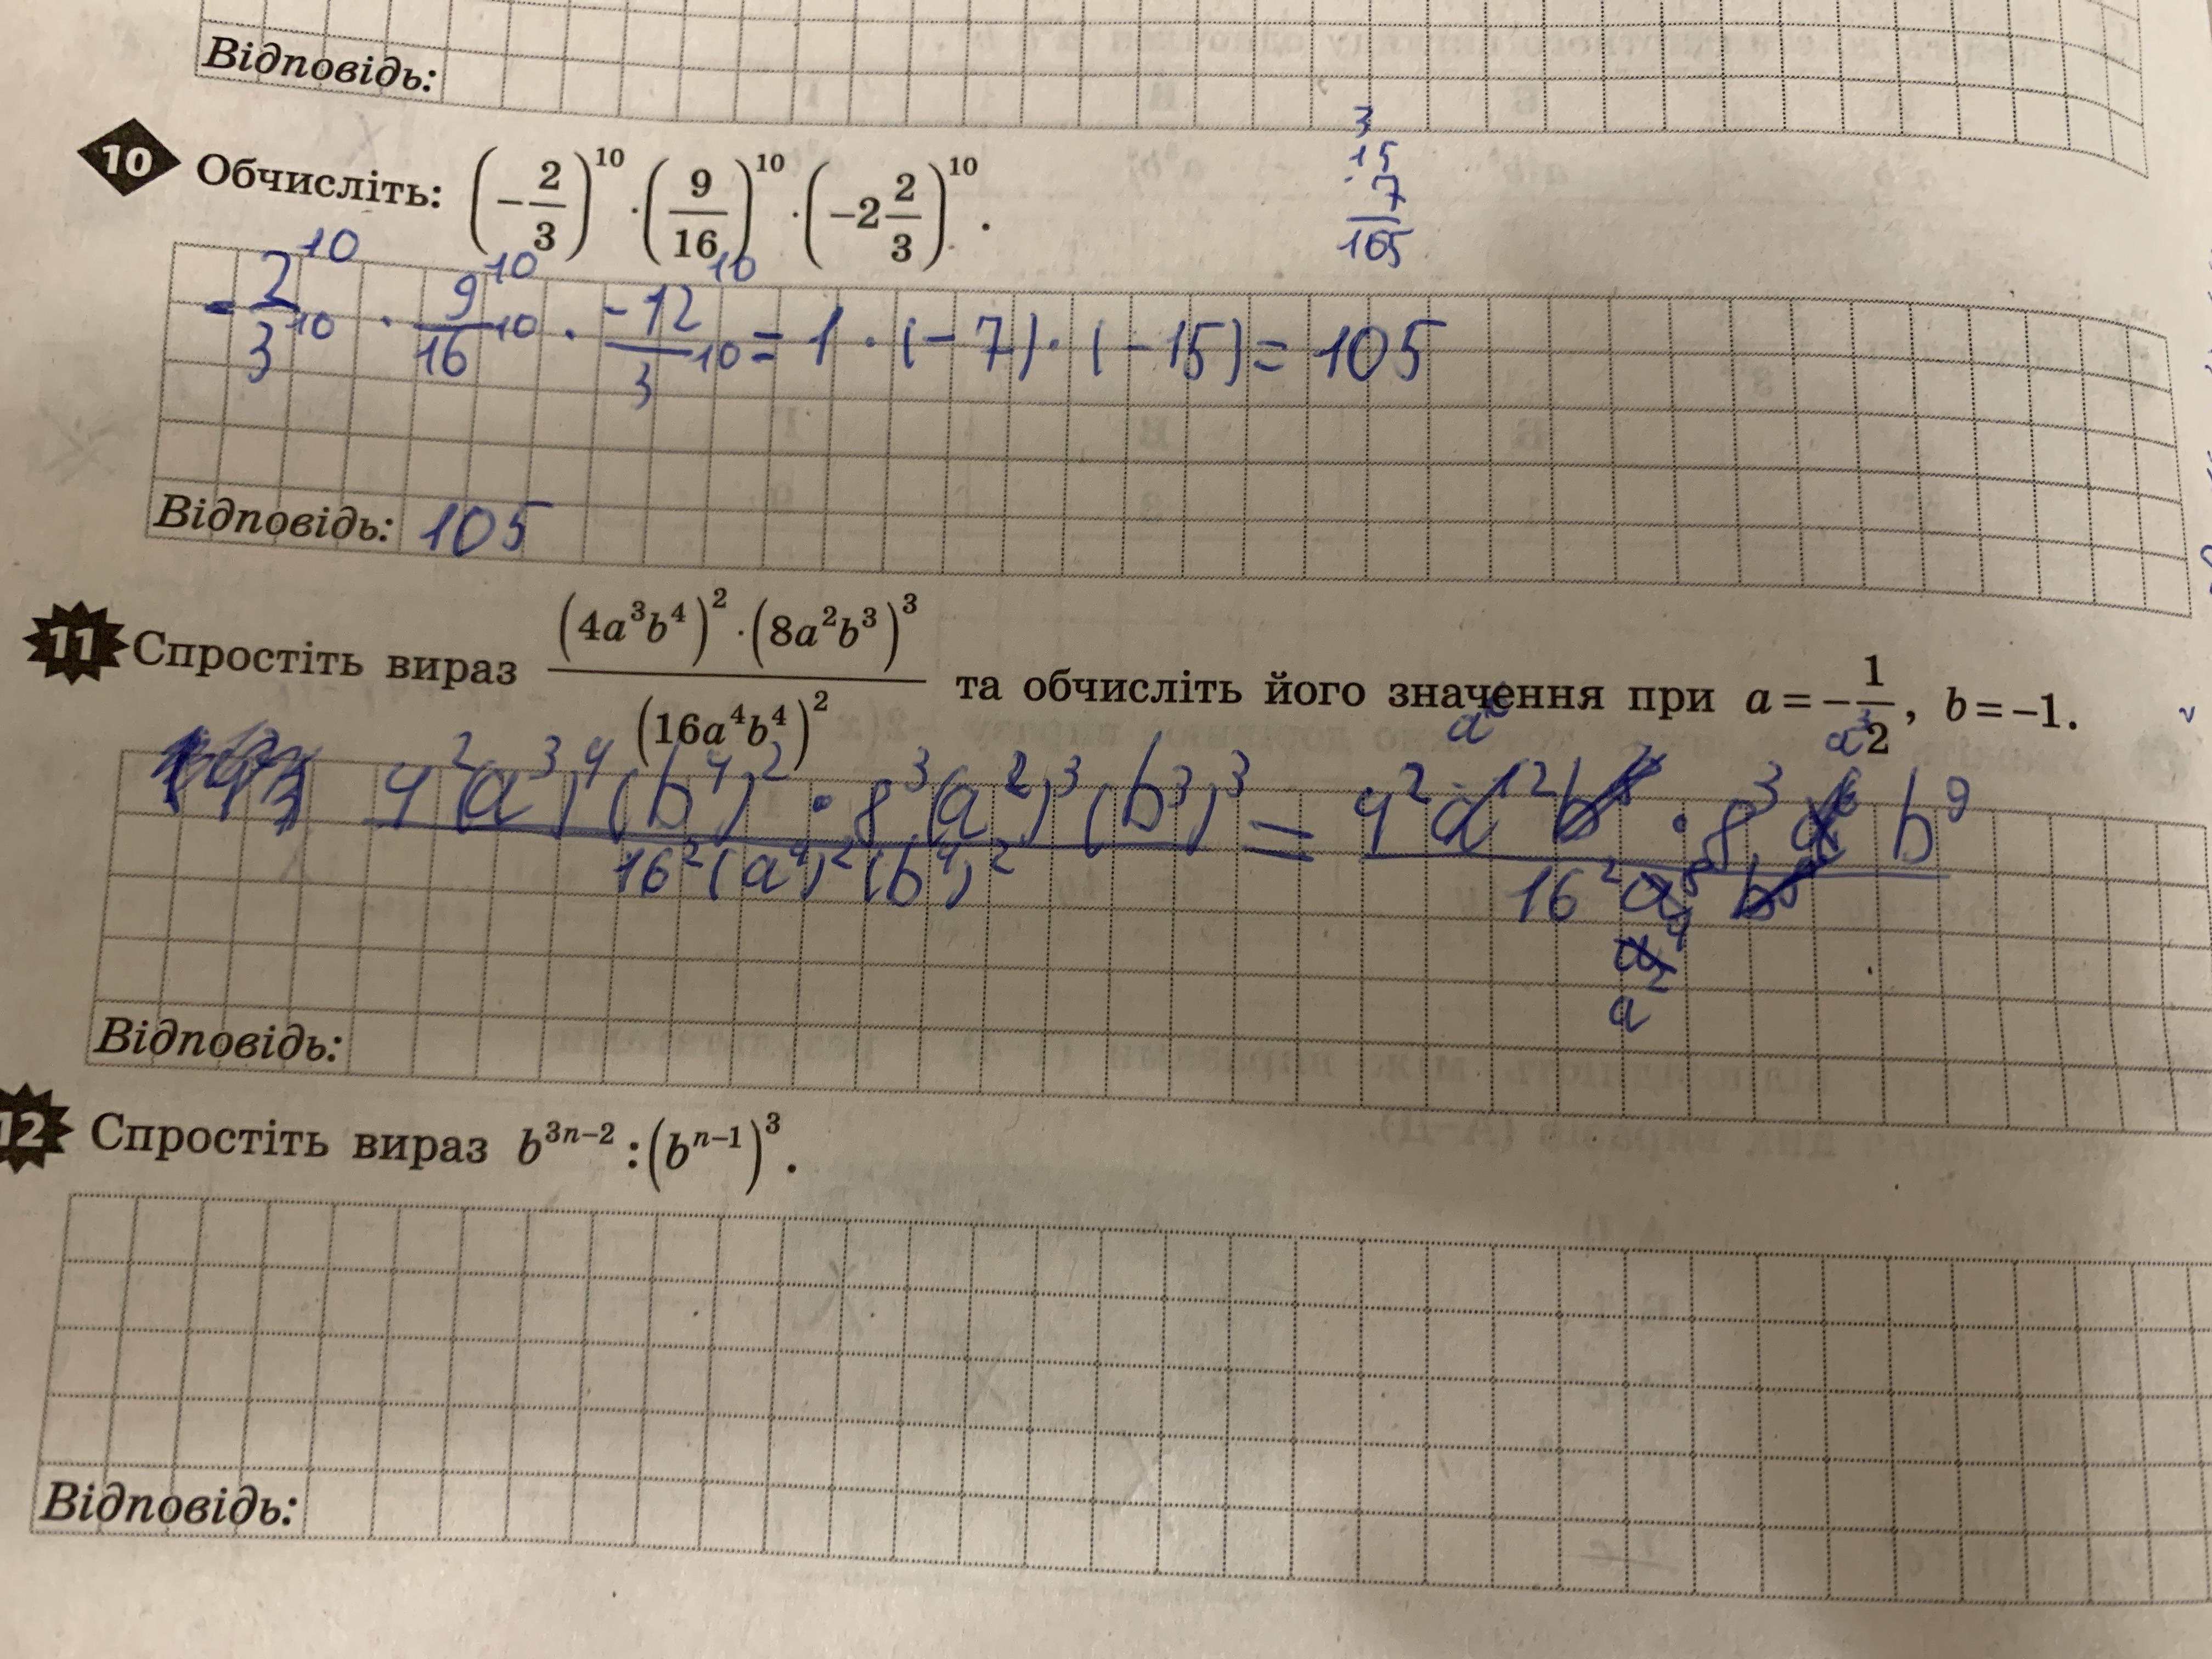 Відповідь:
3
15
7
105
10 Обчисліть: (−2/3)^10 · (9/16)^10 · (−2 2/3)^10.
−2^10/3^10 · 9^10/16^10 · −12^10/3^10 = 1 · (−7) · (−15) = 105
Відповідь: 105
11 Спростіть вираз (4a^3b^4)^2 · (8a^2b^3)^3 / (16a^4b^4)^2 та обчисліть його значення при a = −1/2, b = −1.
a^6 a^3
4^2(a^3)^4(b^4)^2 · 8^3(a^2)^3(b^3)^3 / 16^2(a^4)^2(b^4)^2 = 4^2a^12b^8 · 8^3a^6b^9 / 16^2a^8b^8
a^4
a^2
Відповідь:
12 Спростіть вираз b^(3n−2) : (b^(n−1))^3.
Відповідь: